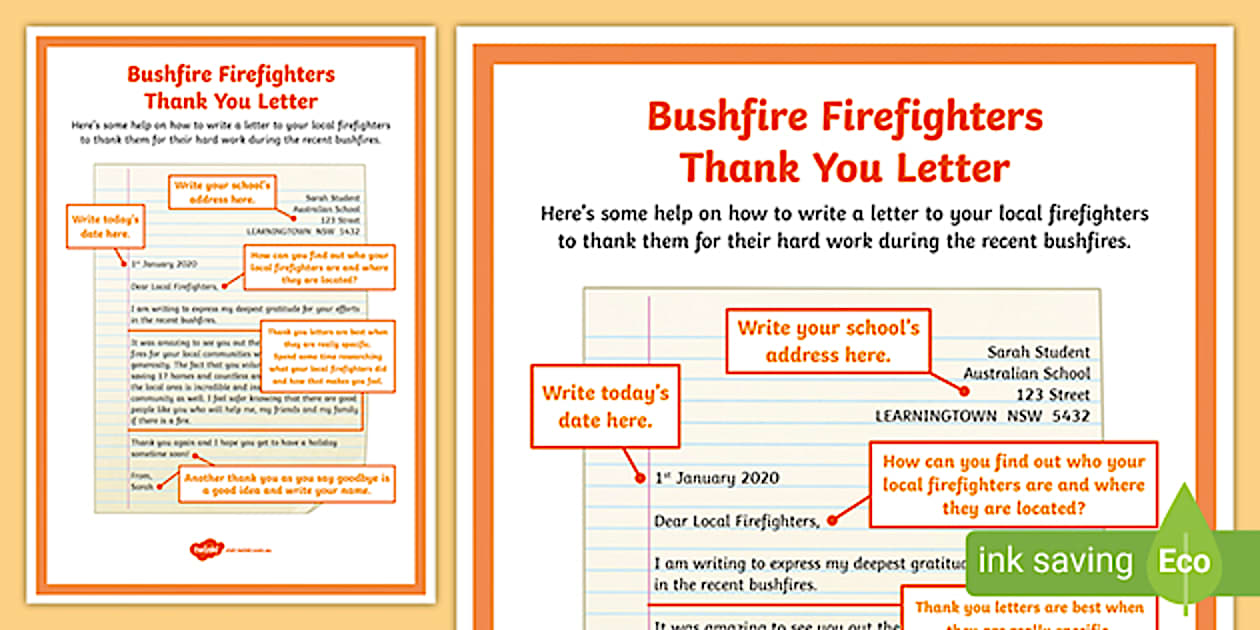 Bushfire Firefighters
Thank You Letter
Here's some help on how to write a letter to your local firefighters
to thank them for their hard work during the recent bushfires.
Write your school's
address here.
Sarah Student
Australian School
123 Street
LEARNINGTOWN NSW 5432
Write today's
date here.
1st January 2020
How can you find out who your
local firefighters are and where
they are located?
Dear Local Firefighters,
I am writing to express my deepest gratitude for your efforts
in the recent bushfires.
Thank you letters are best when
they are really specific.
Spend some time researching
what your local firefighters did
and how that makes you feel.
It was amazing to see you out the
fires for your local communities
generosity. The fact that you
saving 17 horses and countless
the local area is incredible and
community as well. I feel safer knowing that there are good
people like you who will help me, my friends and my family
if there is a fire.
Thank you again and I hope you get to have a holiday
sometime soon!
From,
Sarah
Another thank you as you say goodbye is
a good idea and write your name.
twinkl visit twinkl.com.au
Bushfire Firefighters
Thank You Letter
Here's some help on how to write a letter to your local firefighters
to thank them for their hard work during the recent bushfires.
Write your school's
address here.
Sarah Student
Australian School
123 Street
LEARNINGTOWN NSW 5432
Write today's
date here.
1st January 2020
How can you find out who your
local firefighters are and where
they are located?
Dear Local Firefighters,
I am writing to express my deepest gratitu
in the recent bushfires.
ink saving Eco
Thank you letters are best when
they are really specific.
It was amazing to see you out the